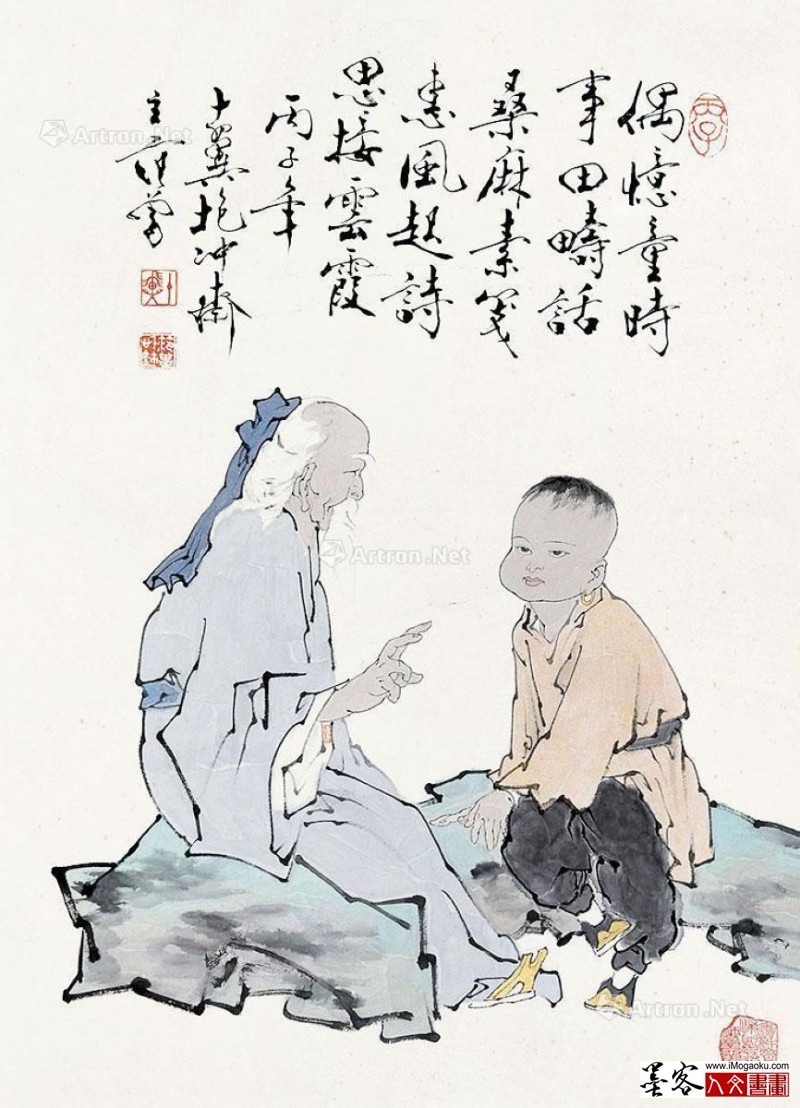 偶憶童時
事田疇話
桑麻素箋
惠風起詩
思接雲霞
丙子年
十翼抱冲齋
主范曾
Artron.Net
Artron.Net
Artron.Net
www.iMogaoku.com
墨客
人文書畫